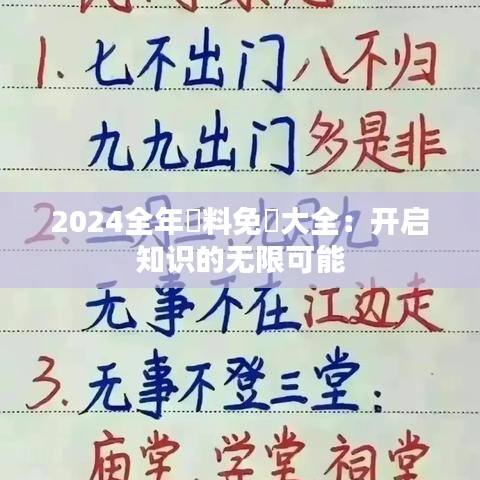 1. 七不出门八不归
九九出门多是非
2024全年料免大全：开启
知识的无限可能
无事不在江边走
3. 无事不登三堂：
庙堂.学堂.祠堂